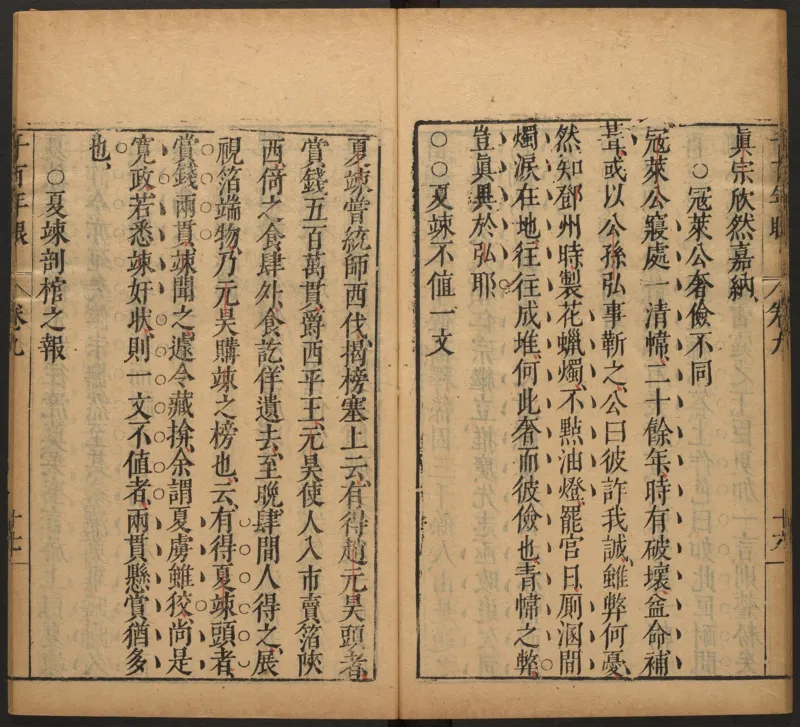 真宗欣然嘉納
○寇萊公奢儉不同
寇萊公寢處一清幃二十餘年時有破壞益命補
葺或以公孫弘事靳之公曰彼詐我誠雖弊何憂
然知鄧州時製花蠟燭不點油燈罷官日厠溷間
燭淚在地往往成堆何此奢而彼儉也青幃之弊
豈真異於弘耶
○○夏竦不值一文
卷九
十六
夏竦嘗統師西伐揭榜塞上云有得趙元昊頭者
賞錢五百萬貫爵西平王元昊使人入市賣箔陝
西倚之食肆外食訖佯遺去至晚肆間人得之展
視箔端物乃元昊購竦之榜也云有得夏竦頭者
賞錢兩貫竦聞之遽令藏掩余謂夏虜雖狡尚是
寬政若悉竦奸狀則一文不值者兩貫懸賞猶多
也
○夏竦剖棺之報
千百年眼
卷九